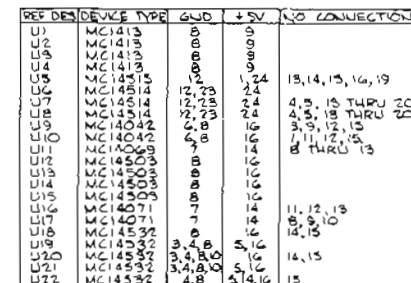 REF DES DEVICE TYPE GND +5V NO CONNECTION
U1 MC1413 8 9
U2 MC1413 8 9
U3 MC1413 8 9
U4 MC1413 8 9
U5 MC14515 12 1,24 13,14,15,16,19
U6 MC14514 12,23 24
U7 MC14514 12,23 24 4,5,18 THRU 20
U8 MC14514 12,23 24 4,5,18 THRU 20
U9 MC14042 6,8 16 3,9,12,15
U10 MC14042 6,8 16 1,11,12,15
U11 MC14069 7 14 8 THRU 13
U12 MC14503 8 16
U13 MC14503 8 16
U14 MC14503 8 16
U15 MC14503 8 16
U16 MC14071 7 14 11,12,13
U17 MC14071 7 14 8,9,10
U18 MC14532 8 16 14,15
U19 MC14532 3,4,8 5,16
U20 MC14532 3,4,8,10 16 14,15
U21 MC14532 3,4,8,10 5,16
U22 MC14532 4,8 5,14,16 15